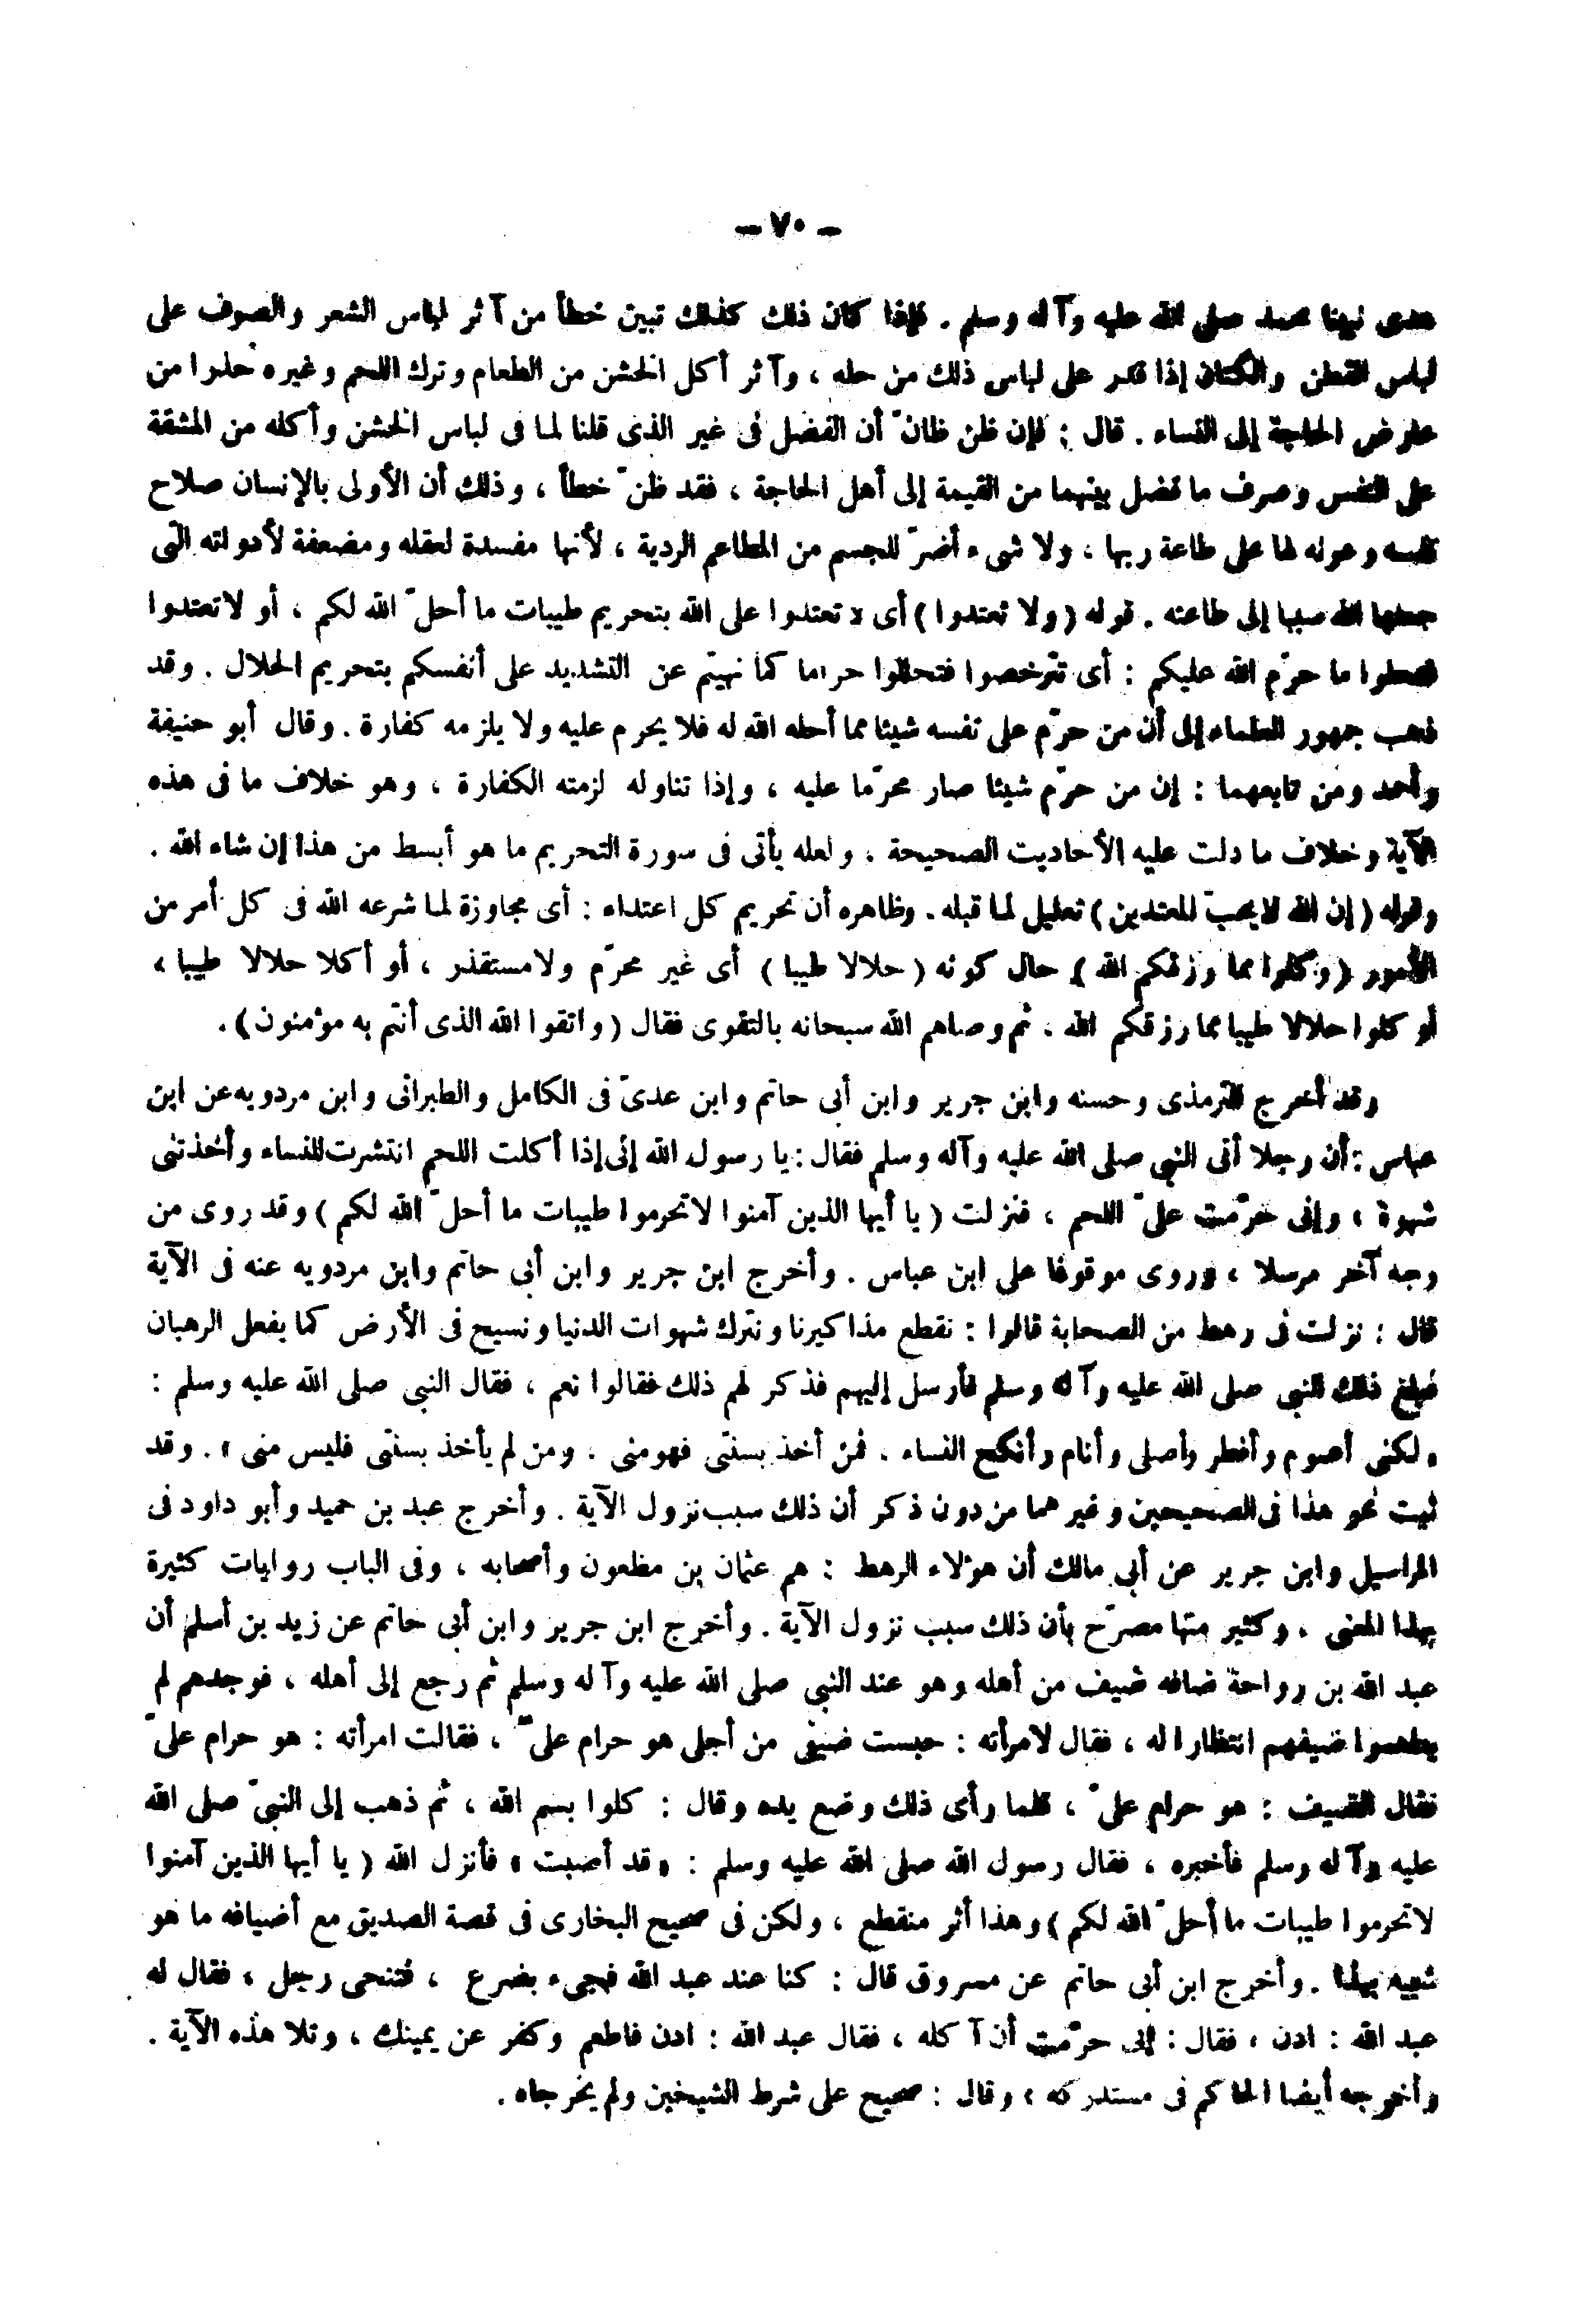 – ٧٠ –
هدى نبينا محمد صلى الله عليه وآله وسلم . فإذا كان ذلك كذلك تبين خطأ من آثر لباس الشعر والصوف على
لباس القطن والكتان إذا قدر على لباس ذلك من حله ، وآثر أكل الخشن من الطعام وترك اللحم وغيره حذرا من
عارض الحاجة إلى النساء . قال : فإن ظن ظانّ أن الفضل فى غير الذى قلنا لما فى لباس الخشن وأكله من المشقة
على النفس وصرف ما فضل بينهما من القيمة إلى أهل الحاجة ، فقد ظنّ خطأ ، وذلك أن الأولى بالإنسان صلاح
نفسه وعونه لها على طاعة ربها ، ولا شىء أضرّ للجسم من المطاعم الردية ، لأنها مفسدة لعقله ومضعفة لأدواته التى
جعلها الله سببا إلى طاعته . قوله ( ولا تعتدوا ) أى لا تعتدوا على الله بتحريم طيبات ما أحلّ الله لكم ، أو لا تعتدوا
فتحلوا ما حرّم الله عليكم : أى تترخصوا فتحللوا حراما كما نهيتم عن التشديد على أنفسكم بتحريم الحلال . وقد
ذهب جمهور العلماء إلى أن من حرّم على نفسه شيئا مما أحله الله له فلا يحرم عليه ولا يلزمه كفارة . وقال أبو حنيفة
وأحمد ومن تابعهما : إن من حرّم شيئا صار محرّما عليه ، وإذا تناوله لزمته الكفارة ، وهو خلاف ما فى هذه
الآية وخلاف ما دلت عليه الأحاديث الصحيحة ، ولعله يأتى فى سورة التحريم ما هو أبسط من هذا إن شاء الله .
وقوله ( إن الله لا يحبّ المعتدين ) تعليل لما قبله . وظاهره أن تحريم كل اعتداء : أى مجاوزة لما شرعه الله فى كل أمر من
الأمور ( وكلوا مما رزقكم الله ) حال كونه ( حلالا طيبا ) أى غير محرّم ولا مستقذر ، أو أكلا حلالا طيبا ،
أو كلوا حلالا طيبا مما رزقكم الله ، ثم وصاهم الله سبحانه بالتقوى فقال ( واتقوا الله الذى أنتم به مؤمنون ) .
وقد أخرج الترمذى وحسنه وابن جرير وابن أبى حاتم وابن عدىّ فى الكامل والطبرانى وابن مردويه عن ابن
عباس : أن رجلا أتى النبى صلى الله عليه وآله وسلم فقال : يا رسول الله إنى إذا أكلت اللحم انتشرت للنساء وأخذتنى
شهوة ، وإنى حرّمت علىّ اللحم ، فنزلت ( يا أيها الذين آمنوا لا تحرموا طيبات ما أحلّ الله لكم ) وقد روى من
وجه آخر مرسلا ، وروى موقوفا على ابن عباس . وأخرج ابن جرير وابن أبى حاتم وابن مردويه عنه فى الآية
قال : نزلت فى رهط من الصحابة قالوا : نقطع مذاكيرنا ونترك شهوات الدنيا ونسيح فى الأرض كما يفعل الرهبان
فبلغ ذلك النبى صلى الله عليه وآله وسلم فأرسل إليهم فذكر لهم ذلك فقالوا نعم ، فقال النبى صلى الله عليه وسلم :
« لكنى أصوم وأفطر وأصلى وأنام وأنكح النساء ، فمن أخذ بسنتى فهو منى ، ومن لم يأخذ بسنتى فليس منى » . وقد
ثبت نحو هذا فى الصحيحين وغيرهما من دون ذكر أن ذلك سبب نزول الآية . وأخرج عبد بن حميد وأبو داود فى
المراسيل وابن جرير عن أبى مالك أن هؤلاء الرهط : هم عثمان بن مظعون وأصحابه ، وفى الباب روايات كثيرة
بهذا المعنى ، وكثير منها مصرّح بأن ذلك سبب نزول الآية . وأخرج ابن جرير وابن أبى حاتم عن زيد بن أسلم أن
عبد الله بن رواحة ضافه ضيف من أهله وهو عند النبى صلى الله عليه وآله وسلم ثم رجع إلى أهله ، فوجدهم لم
يطعموا ضيفهم انتظارا له ، فقال لامرأته : حبست ضيفى من أجلى هو حرام علىّ ، فقالت امرأته : هو حرام علىّ
فقال الضيف : هو حرام علىّ ، فلما رأى ذلك وضع يده وقال : كلوا بسم الله ، ثم ذهب إلى النبىّ صلى الله
عليه وآله وسلم فأخبره ، فقال رسول الله صلى الله عليه وسلم : « قد أصبت » فأنزل الله ( يا أيها الذين آمنوا
لا تحرموا طيبات ما أحلّ الله لكم ) وهذا أثر منقطع ، ولكن فى صحيح البخارى فى قصة الصديق مع أضيافه ما هو
شبيه بهذا . وأخرج ابن أبى حاتم عن مسروق قال : كنا عند عبد الله فجىء بضرع ، فتنحى رجل ، فقال له
عبد الله : ادن ، فقال : إنى حرّمت أن آكله ، فقال عبد الله : ادن فاطعم وكفر عن يمينك ، وتلا هذه الآية .
وأخرجه أيضا الحاكم فى مستدركه ، وقال : صحيح على شرط الشيخين ولم يخرجاه .